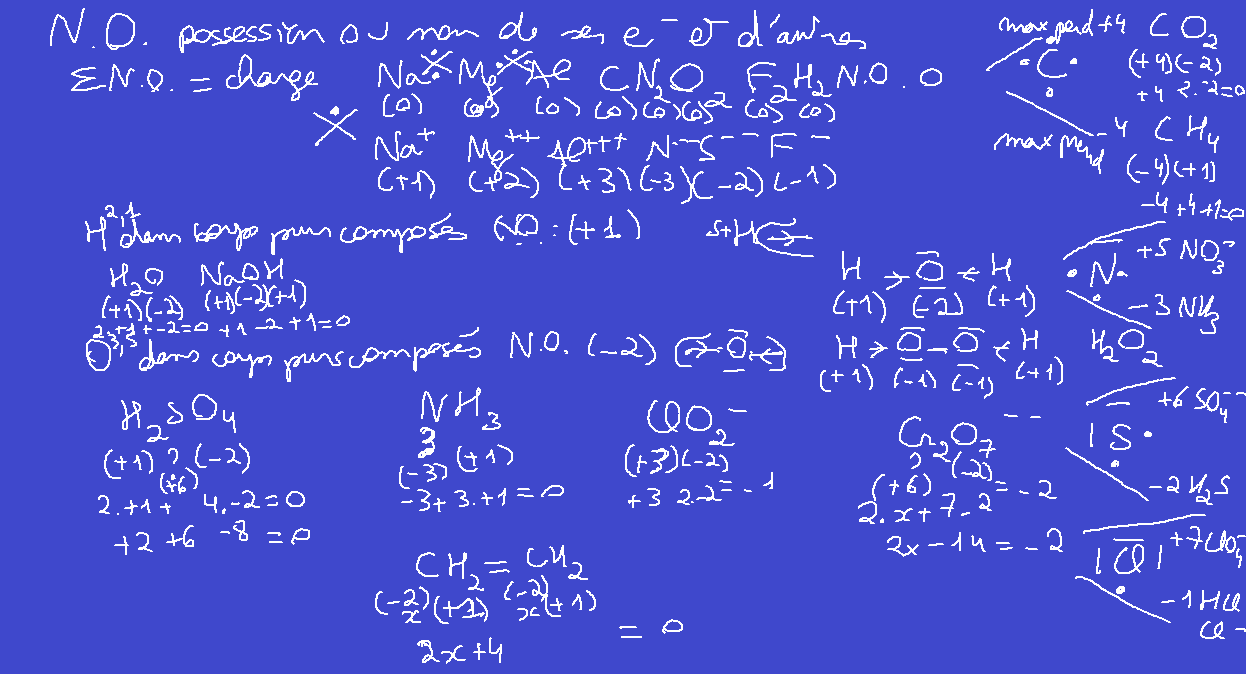 N.O. possession ou non de ses e⁻ et d'autres
Σ N.O. = charge Na Mg Al C N₂ O₂ F₂ H₂ N.O. 0
(0) (0) (0) (0) (0) (0) (0) (0)
Na⁺ Mg⁺⁺ Al⁺⁺⁺ N⁻⁻⁻ S⁻⁻ F⁻
(+1) (+2) (+3) (-3) (-2) (-1)
H²,¹ dans corps purs composés N.O. : (+1)
H₂O NaOH
(+1)(-2) (+1)(-2)(+1)
2.+1+-2=0 +1-2+1=0
H → O ← H
(+1) (-2) (+1)
O³,⁵ dans corps purs composés N.O. (-2) → O ←
H → O – O ← H H₂O₂
(+1) (-1) (-1) (+1)
H₂SO₄
(+1) ? (-2)
(+6)
2.+1+ 4.-2=0
+2 +6 -8 = 0
NH₃
3
(-3) (+1)
-3+3.+1=0
ClO₂⁻
(+3)(-2)
+3 2.-2=-1
Cr₂O₇⁻⁻
? (-2)
(+6) = -2
2.x+7.-2
2x-14=-2
CH₂=CH₂
(-2)(+1) (-2)(+1)
x x
2x+4 = 0
max perd +4 CO₂
C (+4)(-2)
+4 2.-2=0
max prend -4 CH₄
(-4)(+1)
-4+4.+1=0
N +5 NO₃⁻
-3 NH₃
+6 SO₄⁻⁻
S
-2 H₂S
Cl +7 ClO₄⁻
-1 HCl
Cl⁻